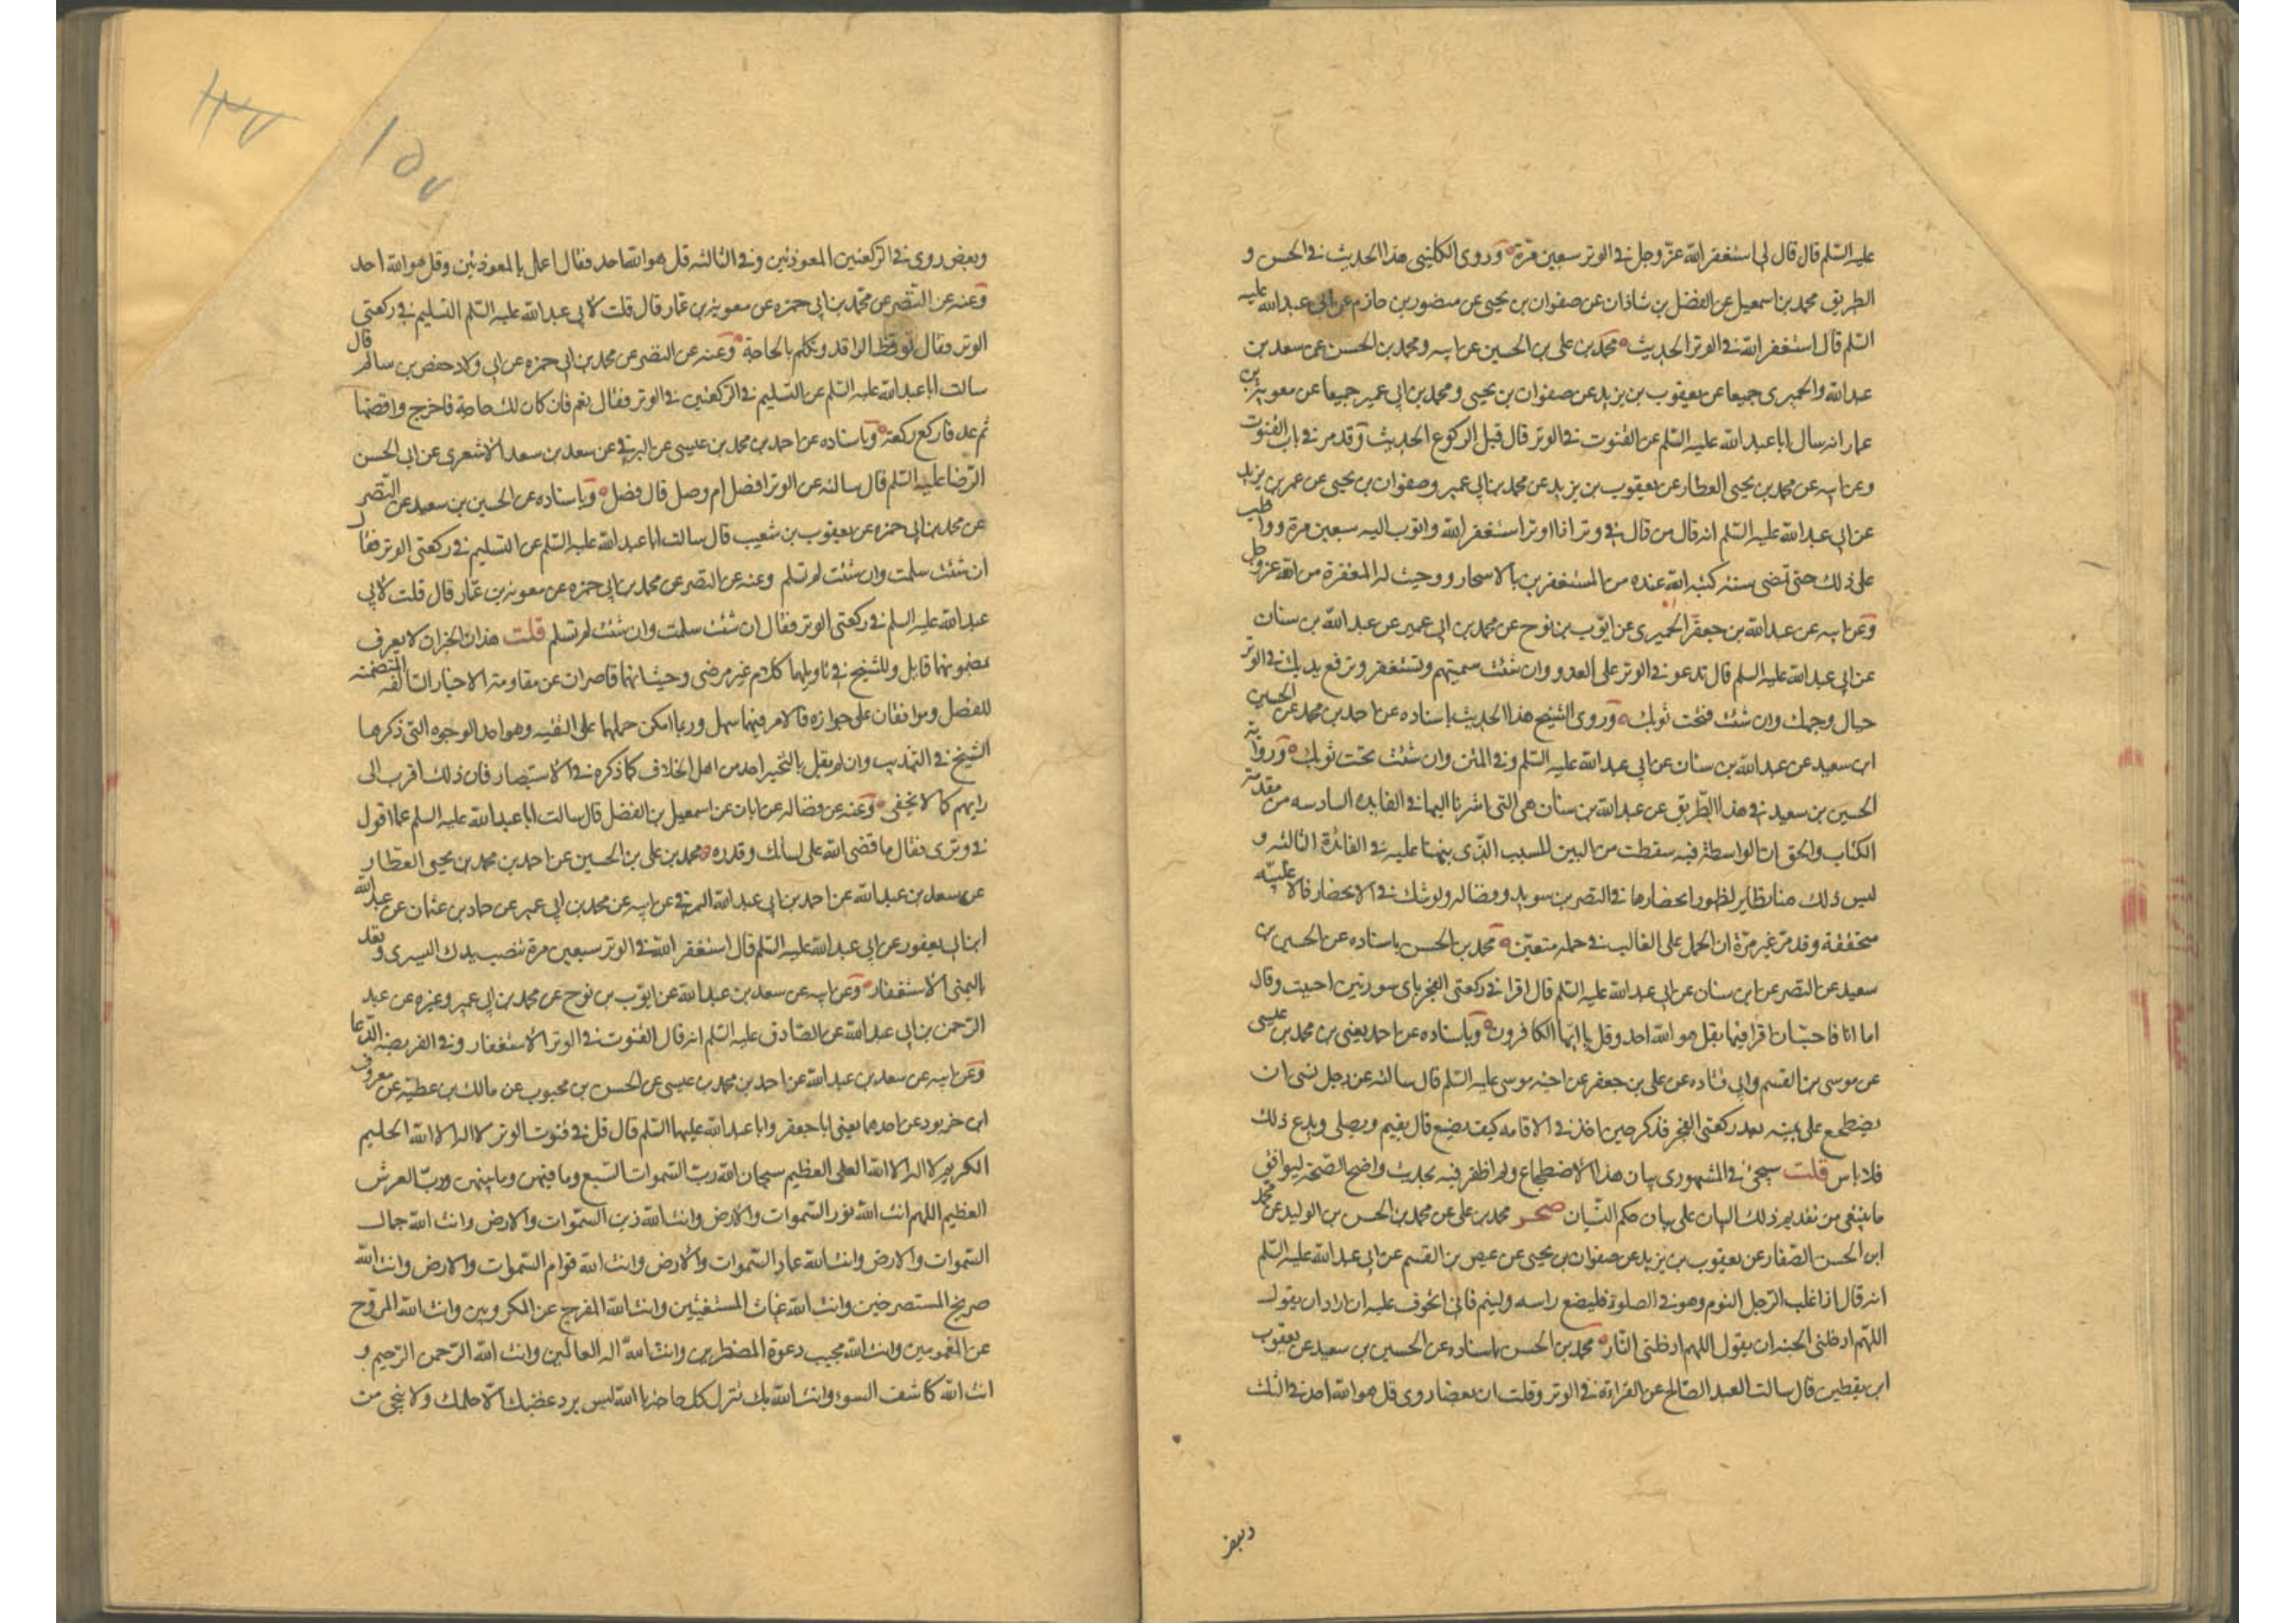 عليه السلم قال قال لي استغفر الله عز وجل في الوتر سبعين مرة وروى الكليني هذا الحديث في الحسن و
الطريق محمد بن اسمعيل عن الفضل بن شاذان عن صفوان بن يحيى عن منصور بن حازم عن ابي عبد الله عليه
السلم قال استغفر الله في الوتر الحديث محمد بن علي بن الحسين عن ابيه ومحمد بن الحسن عن سعد بن
عبد الله والحميري جميعا عن يعقوب بن يزيد عن صفوان بن يحيى ومحمد بن ابي عمير جميعا عن معوية بن
عمار انه سال ابا عبد الله عليه السلم عن القنوت في الوتر قال قبل الركوع الحديث وقد مر في باب القنوت
وعن ابيه عن محمد بن يحيى العطار عن يعقوب بن يزيد عن محمد بن ابي عمير وصفوان بن يحيى عن عمر بن يزيد
عن ابي عبد الله عليه السلم انه قال من قال في وتره اذا اوتر استغفر الله واتوب اليه سبعين مرة وواظب
على ذلك حتى تمضي سنة كتبه الله عنده من المستغفرين بالاسحار ووجبت له المغفرة من الله عز وجل
وعن ابيه عن عبد الله بن جعفر الحميري عن ايوب بن نوح عن محمد بن ابي عمير عن عبد الله بن سنان
عن ابي عبد الله عليه السلم قال تدعو في الوتر على العدو وان شئت سميتهم وتستغفر وترفع يديك في الوتر
حيال وجهك وان شئت فتحت ثوبك وروى الشيخ هذا الحديث باسناده عن احمد بن محمد عن الحسين
ابن سعيد عن عبد الله بن سنان عن ابي عبد الله عليه السلم وفي المتن وان شئت تحت ثوبك ورواية
الحسين بن سعيد في هذا الطريق عن عبد الله بن سنان هي التي اشرنا اليها في الفايده السادسه من مقدمة
الكتاب والحق ان الواسطة فيه سقطت من البين للسبب الذي نبهنا عليه في الفائدة الثالثه و
ليس ذلك منا بظاير لظهور انحصارها في النضر بن سويد وفضاله ولو شك في الانحصار فالاغلبيه
متحققة وقد مر غير مرة ان الحمل على الغالب في حمله متعين محمد بن الحسن باسناده عن الحسين بن
سعيد عن النضر عن ابن سنان عن ابي عبد الله عليه السلم قال اقرا في ركعتي الفجر باي سورتين احببت وقال
اما انا فاحب ان اقرا فيهما بقل هو الله احد وقل يا ايها الكافرون وباسناده عن احمد يعني بن محمد بن عيسى
عن موسى بن القسم وابي قتاده عن علي بن جعفر عن اخيه موسى عليه السلم قال سالته عن رجل نسي ان
يضطجع على يمينه بعد ركعتي الفجر فذكر حين اخذ في الاقامه كيف يصنع قال يقيم ويصلي ويدع ذلك
فلا باس قلت سيجئ في المشهوري بيان هذا الاضطجاع ولم اظفر فيه بحديث واضح الصحة ليوافق
ما ينبغي من تقديم ذلك البيان على بيان حكم النسيان صحر محمد بن علي عن محمد بن الحسن بن الوليد عن محمد
ابن الحسن الصفار عن يعقوب بن يزيد عن صفوان بن يحيى عن عيص بن القسم عن ابي عبد الله عليه السلم
انه قال اذا غلب الرجل النوم وهو في الصلوة فليضع راسه ولينم فاني اتخوف عليه ان اراد ان يقول
اللهم ادخلني الجنه ان يقول اللهم ادخلني النار محمد بن الحسن باسناده عن الحسين بن سعيد عن يعقوب
ابن يقطين قال سالت العبد الصالح عن القراءة في الوتر وقلت ان بعضا روى قل هو الله احد في الثلث
وبعض
وبعض روى في الركعتين المعوذتين وفي الثالثه قل هو الله احد فقال اعمل بالمعوذتين وقل هو الله احد
وعنه عن النضر عن محمد بن ابي حمزه عن معوية بن عمار قال قلت لابي عبد الله عليه السلم التسليم في ركعتي
الوتر فقال توقظ الراقد وتكلم بالحاجة وعنه عن النضر عن محمد بن ابي حمزه عن ابي ولاد حفص بن سالم قال
سالت ابا عبد الله عليه السلم عن التسليم في الركعتين في الوتر فقال نعم فان كان لك حاجة فاخرج واقضها
ثم عد فاركع ركعة وباسناده عن احمد بن محمد بن عيسى عن البرقي عن سعد بن سعد الاشعري عن ابي الحسن
الرضا عليه السلم قال سالته عن الوتر افضل ام وصل قال فضل وباسناده عن الحسين بن سعيد عن النضر
عن محمد بن ابي حمزه عن يعقوب بن شعيب قال سالت ابا عبد الله عليه السلم عن التسليم في ركعتي الوتر فقال
ان شئت سلمت وان شئت لم تسلم وعنه عن النضر عن محمد بن ابي حمزه عن معوية بن عمار قال قلت لابي
عبد الله عليه السلم في ركعتي الوتر فقال ان شئت سلمت وان شئت لم تسلم قلت هذان الخبران لا يعرف
بمضمونهما قايل وللشيخ في تاويلهما كلام غير مرضي وحيث انهما قاصران عن مقاومة الاخبار السالفه المتضمنة
للفصل وموافقان على جوازه فالامر فيهما سهل وربما امكن حملهما على التقيه وهو احد الوجوه التي ذكرها
الشيخ في التهذيب وان لم يقل بالتخيير احد من اهل الخلاف كما ذكره في الاستبصار فان ذلك اقرب الى
رايهم كما لا يخفى وعنه عن فضاله عن ابان عن اسمعيل بن الفضل قال سالت ابا عبد الله عليه السلم عما اقول
في وتري فقال ما قضى الله على لسانك وقدره محمد بن علي بن الحسين عن احمد بن محمد بن يحيى العطار
عن سعد بن عبد الله عن احمد بن ابي عبد الله البرقي عن ابيه عن محمد بن ابي عمير عن حماد بن عثمان عن عبد الله
ابن ابي يعفور عن ابي عبد الله عليه السلم قال استغفر الله في الوتر سبعين مرة تنصب يدك اليسرى وتعد
باليمنى الاستغفار وعن ابيه عن سعد بن عبد الله عن ايوب بن نوح عن محمد بن ابي عمير وغيره عن عبد
الرحمن بن ابي عبد الله عن الصادق عليه السلم انه قال القنوت في الوتر الاستغفار وفي الفريضه الدعا
وعن ابيه عن سعد بن عبد الله عن احمد بن محمد بن عيسى عن الحسن بن محبوب عن مالك بن عطية عن معروف
ابن خربوذ عن احدهما يعني ابا جعفر وابا عبد الله عليهما السلم قال قل في قنوت الوتر لا اله الا الله الحليم
الكريم لا اله الا الله العلي العظيم سبحان الله رب السموات السبع وما فيهن وما بينهن ورب العرش
العظيم اللهم انت الله نور السموات والارض وانت الله زين السموات والارض وانت الله جمال
السموات والارض وانت الله عماد السموات والارض وانت الله قوام السموات والارض وانت الله
صريخ المستصرخين وانت الله غياث المستغيثين وانت الله المفرج عن المكروبين وانت الله المروح
عن المغمومين وانت الله مجيب دعوة المضطرين وانت الله اله العالمين وانت الله الرحمن الرحيم و
انت الله كاشف السوء وانت الله بك تنزل كل حاجة يا الله ليس يرد غضبك الا حلمك ولا ينجي من